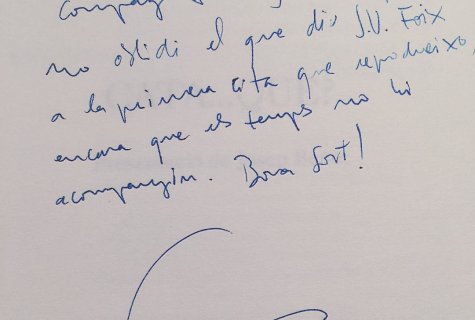 Company
no oblidi el que diu J.V. Foix
a la primera cita que reprodueixo,
encara que els temps no hi
acompanyin. Bona Sort!